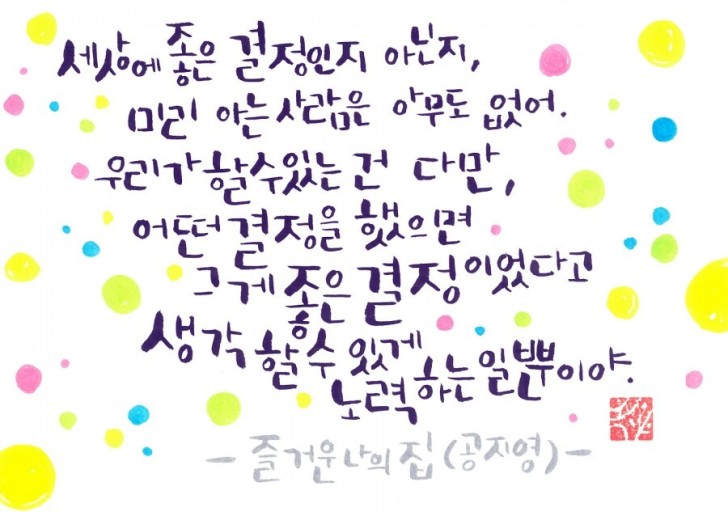 세상에 좋은 결정인지 아닌지,
미리 아는 사람은 아무도 없어.
우리가 할수있는 건 다만,
어떤 결정을 했으면
그게 좋은 결정이었다고
생각 할 수 있게
노력하는 일뿐이야.
- 즐거운 나의 집 (공지영) -